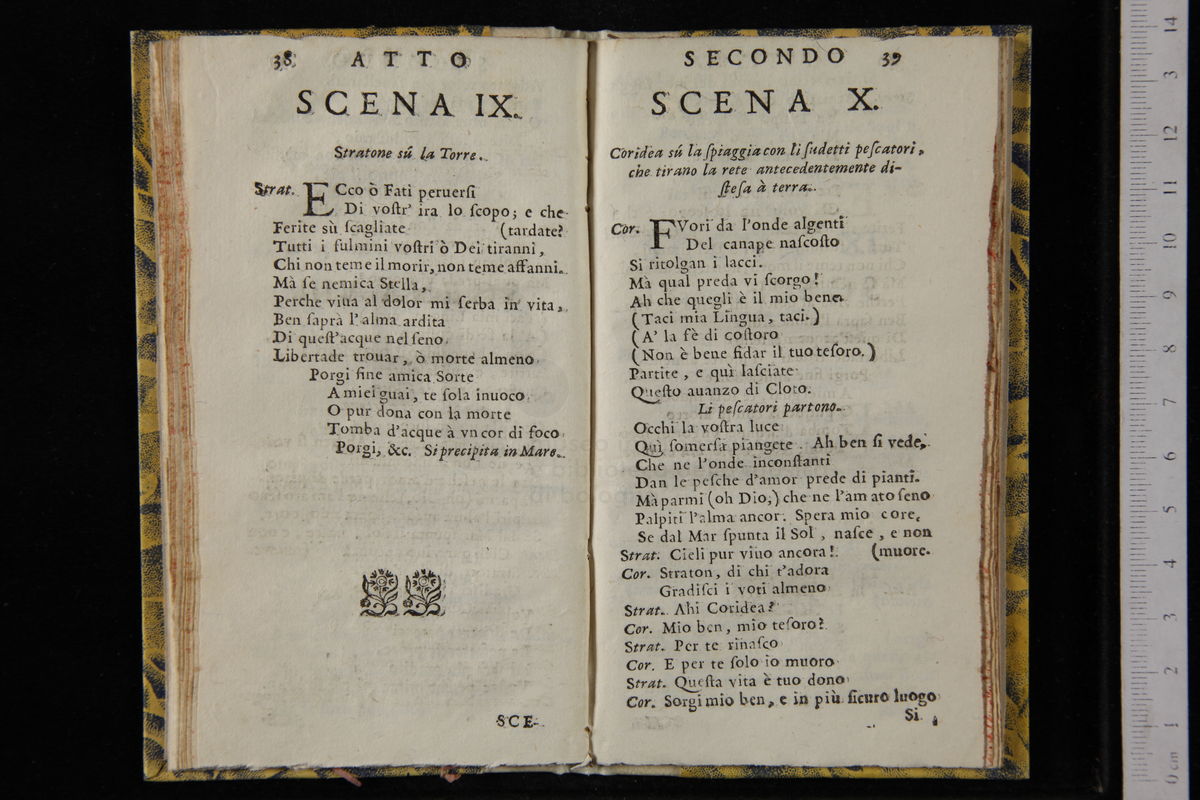 38 ATTO
SCENA IX.
Stratone sú la Torre.
Strat. ECco ò Fati peruerſi
Di voſtr' ira lo ſcopo; e che
Ferite sù ſcagliate (tardate?
Tutti i fulmini voſtri ò Dei tiranni,
Chi non teme il morir, non teme affanni.
Mà ſe nemica Stella,
Perche viua al dolor mi ſerba in vita,
Ben ſaprà l'alma ardita
Di queſt'acque nel ſeno
Libertade trouar, ò morte almeno
Porgi fine amica Sorte
A miei guai, te ſola inuoco
O pur dona con la morte
Tomba d'acque à vn cor di foco
Porgi, &c. Si precipita in Mare.
SCE-
SECONDO 39
SCENA X.
Coridea sú la ſpiaggia con li ſudetti peſcatori,
che tirano la rete antecedentemente di-
ſteſa à terra.
Cor. FVori da l'onde algenti
Del canape naſcoſto
Si ritolgan i lacci.
Mà qual preda vi ſcorgo!
Ah che quegli è il mio bene.
(Taci mia Lingua, taci.)
(A' la fè di coſtoro
(Non è bene fidar il tuo teſoro.)
Partite, e quì laſciate
Queſto auanzo di Cloto.
Li peſcatori partono.
Occhi la voſtra luce
Quì ſomerſa piangete. Ah ben ſi vede,
Che ne l'onde inconſtanti
Dan le peſche d'amor prede di pianti.
Mà parmi (oh Dio,) che ne l'amato ſeno
Palpiti l'alma ancor. Spera mio core,
Se dal Mar ſpunta il Sol, naſce, e non
Strat. Cieli pur viuo ancora! (muore.
Cor. Straton, di chi t'adora
Gradiſci i voti almeno
Strat. Ahi Coridea?
Cor. Mio ben, mio teſoro?
Strat. Per te rinaſco
Cor. E per te ſolo io muoro
Strat. Queſta vita è tuo dono
Cor. Sorgi mio ben, e in più ſicuro luogo
Si
14
3
12
11
10
9
8
7
6
5
4
3
2
1
0 cm